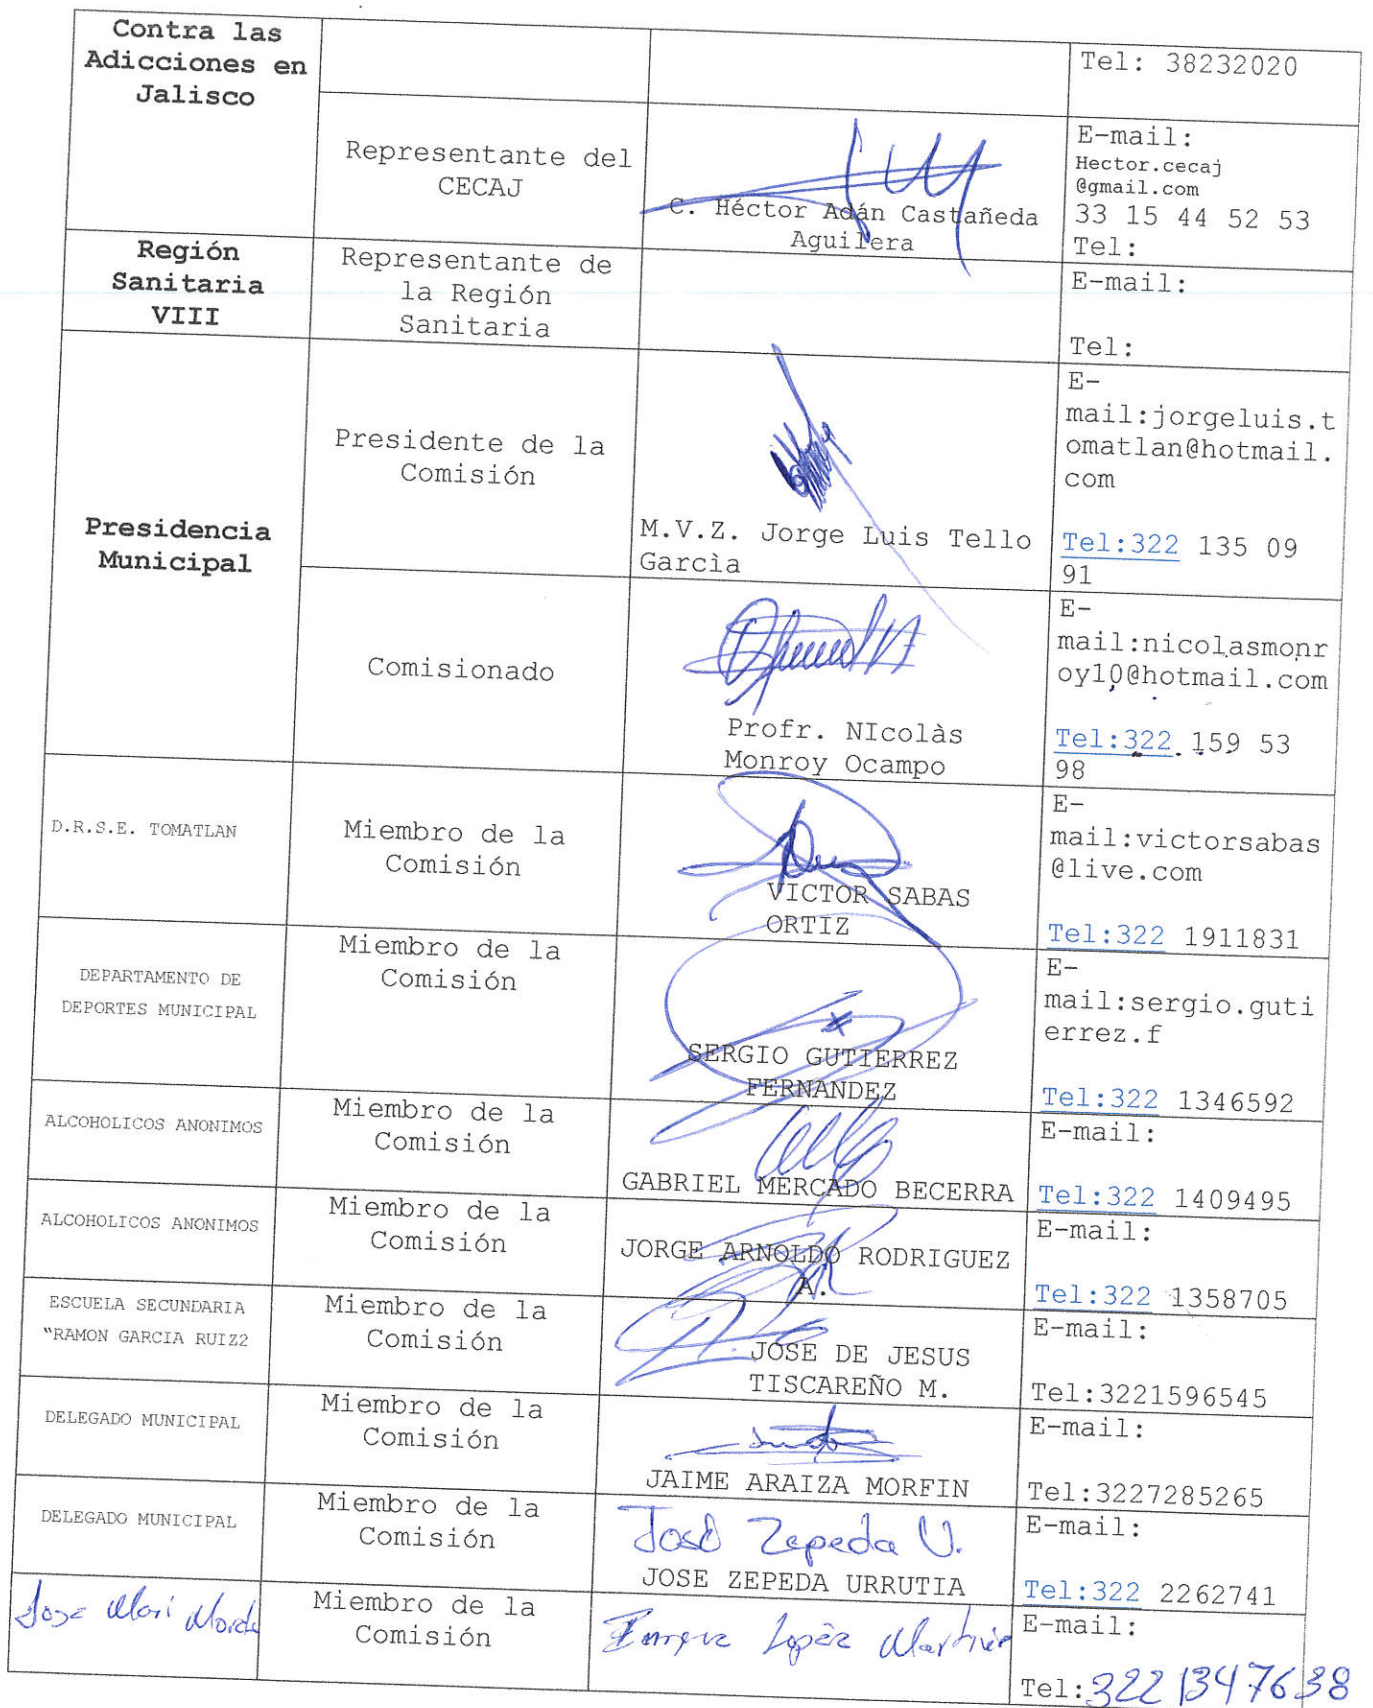 Contra las
Adicciones en
Jalisco
Tel: 38232020
Representante del
CECAJ
C. Héctor Adán Castañeda
Aguilera
E-mail:
Hector.cecaj
@gmail.com
33 15 44 52 53
Tel:
Región
Sanitaria
VIII
Representante de
la Región
Sanitaria
E-mail:
Tel:
Presidencia
Municipal
Presidente de la
Comisión
M.V.Z. Jorge Luis Tello
Garcìa
E-
mail:jorgeluis.t
omatlan@hotmail.
com
Tel:322 135 09
91
Comisionado
Profr. NIcolàs
Monroy Ocampo
E-
mail:nicolasmonr
oy10@hotmail.com
Tel:322 159 53
98
D.R.S.E. TOMATLAN
Miembro de la
Comisión
VICTOR SABAS
ORTIZ
E-
mail:victorsabas
@live.com
Tel:322 1911831
DEPARTAMENTO DE
DEPORTES MUNICIPAL
Miembro de la
Comisión
SERGIO GUTIERREZ
FERNANDEZ
E-
mail:sergio.guti
errez.f
Tel:322 1346592
ALCOHOLICOS ANONIMOS
Miembro de la
Comisión
GABRIEL MERCADO BECERRA
E-mail:
Tel:322 1409495
ALCOHOLICOS ANONIMOS
Miembro de la
Comisión
JORGE ARNOLDO RODRIGUEZ
A.
E-mail:
Tel:322 1358705
ESCUELA SECUNDARIA
"RAMON GARCIA RUIZ2
Miembro de la
Comisión
JOSE DE JESUS
TISCAREÑO M.
E-mail:
Tel:3221596545
DELEGADO MUNICIPAL
Miembro de la
Comisión
JAIME ARAIZA MORFIN
E-mail:
Tel:3227285265
DELEGADO MUNICIPAL
Miembro de la
Comisión
José Zepeda U.
JOSE ZEPEDA URRUTIA
E-mail:
Tel:322 2262741
Jose Mari
Miembro de la
Comisión
Lopèz Martinéz
E-mail:
Tel:3221347638